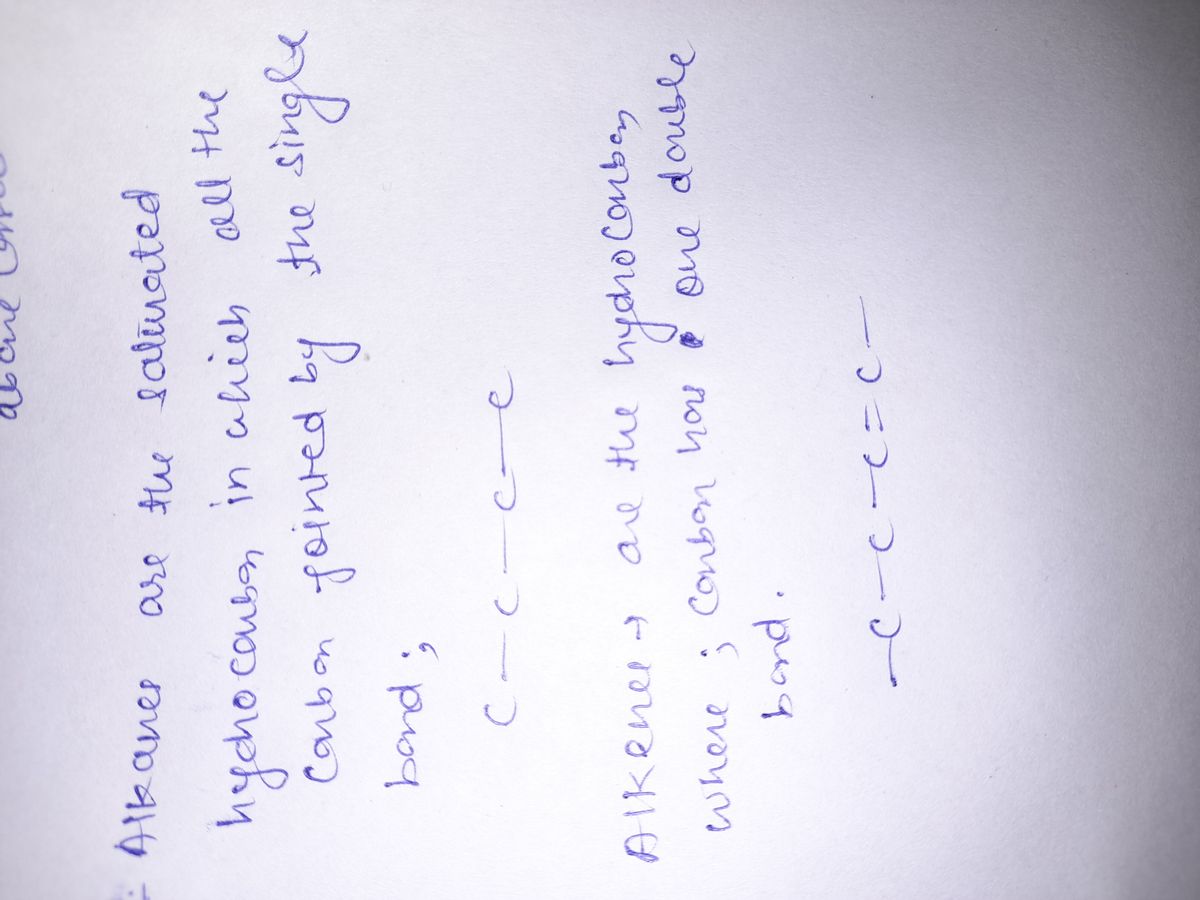 Alkanes are the saturated
hydrocarbon in which all the
Carbon jointed by the single
bond ;
C — C — C — C
Alkenes → are the hydrocarbon
where ; Carbon has one double
bond .
— C — C — C = C —